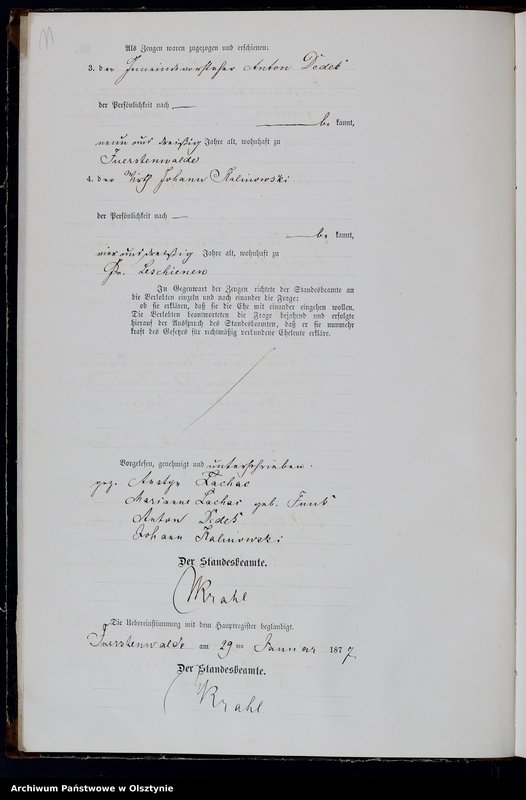 11
Als Zeugen waren zugezogen und erschienen:
3. der Gemeindevorsteher Anton Dedek
der Persönlichkeit nach —
be kannt,
neun und dreißig Jahre alt, wohnhaft zu
Fuerstenwalde
4. der Wirth Johann Kalinowski
der Persönlichkeit nach —
be kannt,
vier und dreißig Jahre alt, wohnhaft zu
Gr. Leschienen
In Gegenwart der Zeugen richtete der Standesbeamte an
die Verlobten einzeln und nach einander die Frage:
ob sie erklären, daß sie die Ehe mit einander eingehen wollen.
Die Verlobten beantworteten die Frage bejahend und erfolgte
hierauf der Ausspruch des Standesbeamten, daß er sie nunmehr
kraft des Gesetzes für rechtmäßig verbundene Eheleute erkläre.
Vorgelesen, genehmigt und unterschrieben.
gez. Lachac
Marianne Lachac geb.
Anton Dedek
Johann Kalinowski
Der Standesbeamte.
Krahl
Die Uebereinstimmung mit dem Hauptregister beglaubigt.
Fuerstenwalde am 29 ten Januar 1877
Der Standesbeamte.
Krahl
Archiwum Państwowe w Olsztynie